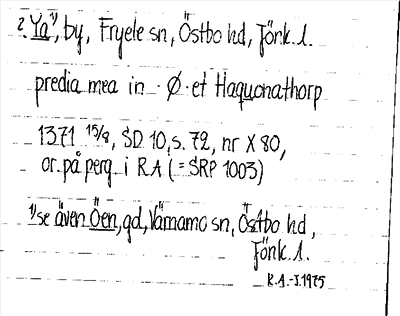 2. Ya¹⁾, by, Fryele sn, Östbo hd, Jönk. l.
predia mea in · Ø · et Haquonathorp
1371 15/8, SD 10, s. 72, nr X 80,
or. på perg. i RA (= SRP 1003)
¹⁾ se även Öen, gd, Värnamo sn, Östbo hd,
Jönk. l.
R.A.-J. 1975